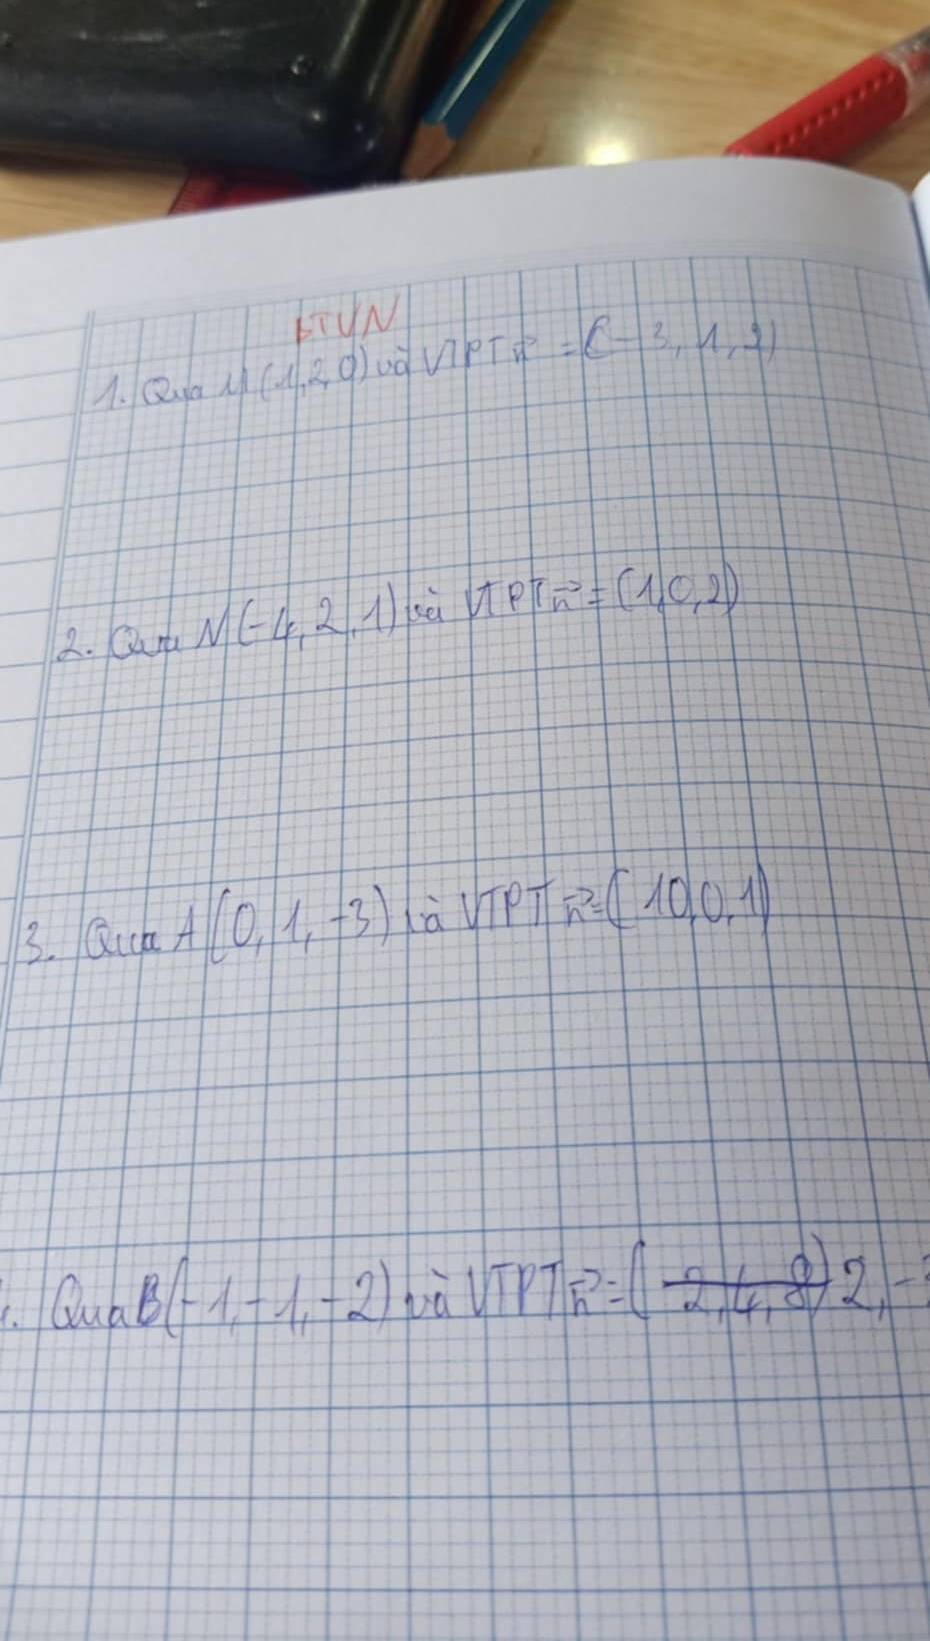 BTVN
1. Qua M(1,2,0) và VTPT n⃗ = (-3,1,2)
2. Qua N(-4,2,1) và VTPT n⃗ = (1,0,2)
3. Qua A(0,1,-3) và VTPT n⃗ = (10,0,1)
Qua B(-1,-1,-2) và VTPT n⃗ = (2,4,8) 2,-